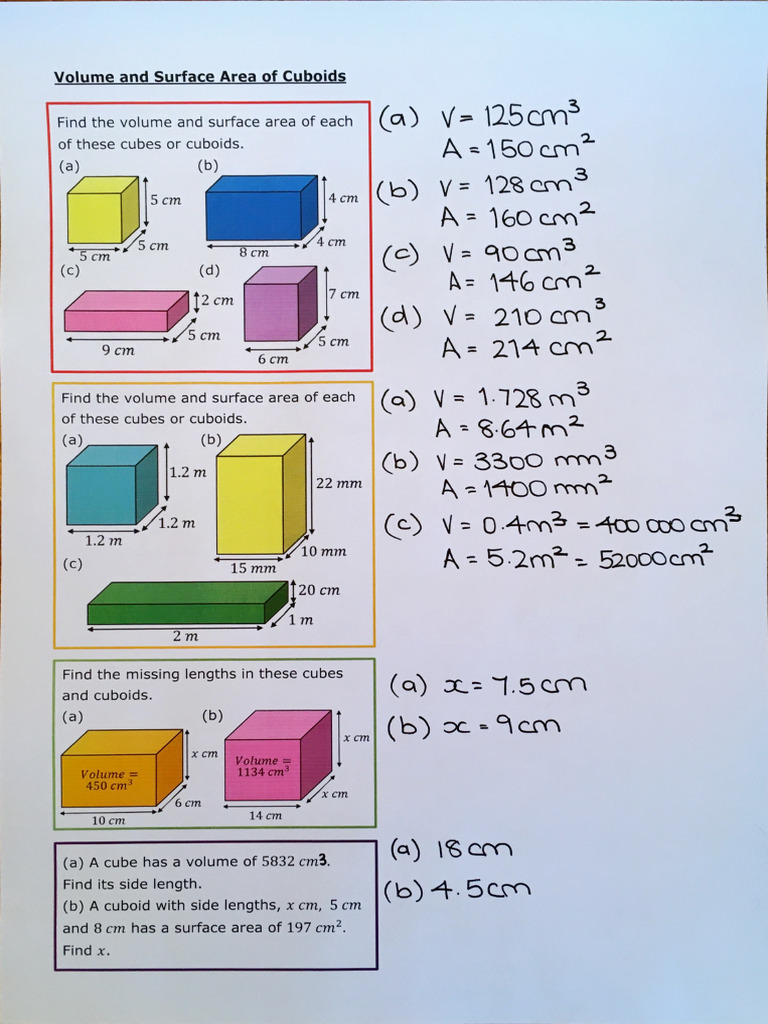 Volume and Surface Area of Cuboids
Find the volume and surface area of each
of these cubes or cuboids.
(a)
(b)
5 cm
5 cm
5 cm
4 cm
4 cm
8 cm
(c)
(d)
2 cm
5 cm
9 cm
7 cm
5 cm
6 cm
(a) V = 125 cm³
A = 150 cm²
(b) V = 128 cm³
A = 160 cm²
(c) V = 90 cm³
A = 146 cm²
(d) V = 210 cm³
A = 214 cm²
Find the volume and surface area of each
of these cubes or cuboids.
(a)
(b)
1.2 m
1.2 m
1.2 m
22 mm
10 mm
15 mm
(c)
20 cm
1 m
2 m
(a) V = 1.728 m³
A = 8.64 m²
(b) V = 3300 mm³
A = 1400 mm²
(c) V = 0.4 m³ = 400 000 cm³
A = 5.2 m² = 52000 cm²
Find the missing lengths in these cubes
and cuboids.
(a)
(b)
Volume =
450 cm³
x cm
6 cm
10 cm
Volume =
1134 cm³
x cm
x cm
14 cm
(a) x = 7.5 cm
(b) x = 9 cm
(a) A cube has a volume of 5832 cm3.
Find its side length.
(b) A cuboid with side lengths, x cm, 5 cm
and 8 cm has a surface area of 197 cm².
Find x.
(a) 18 cm
(b) 4.5 cm